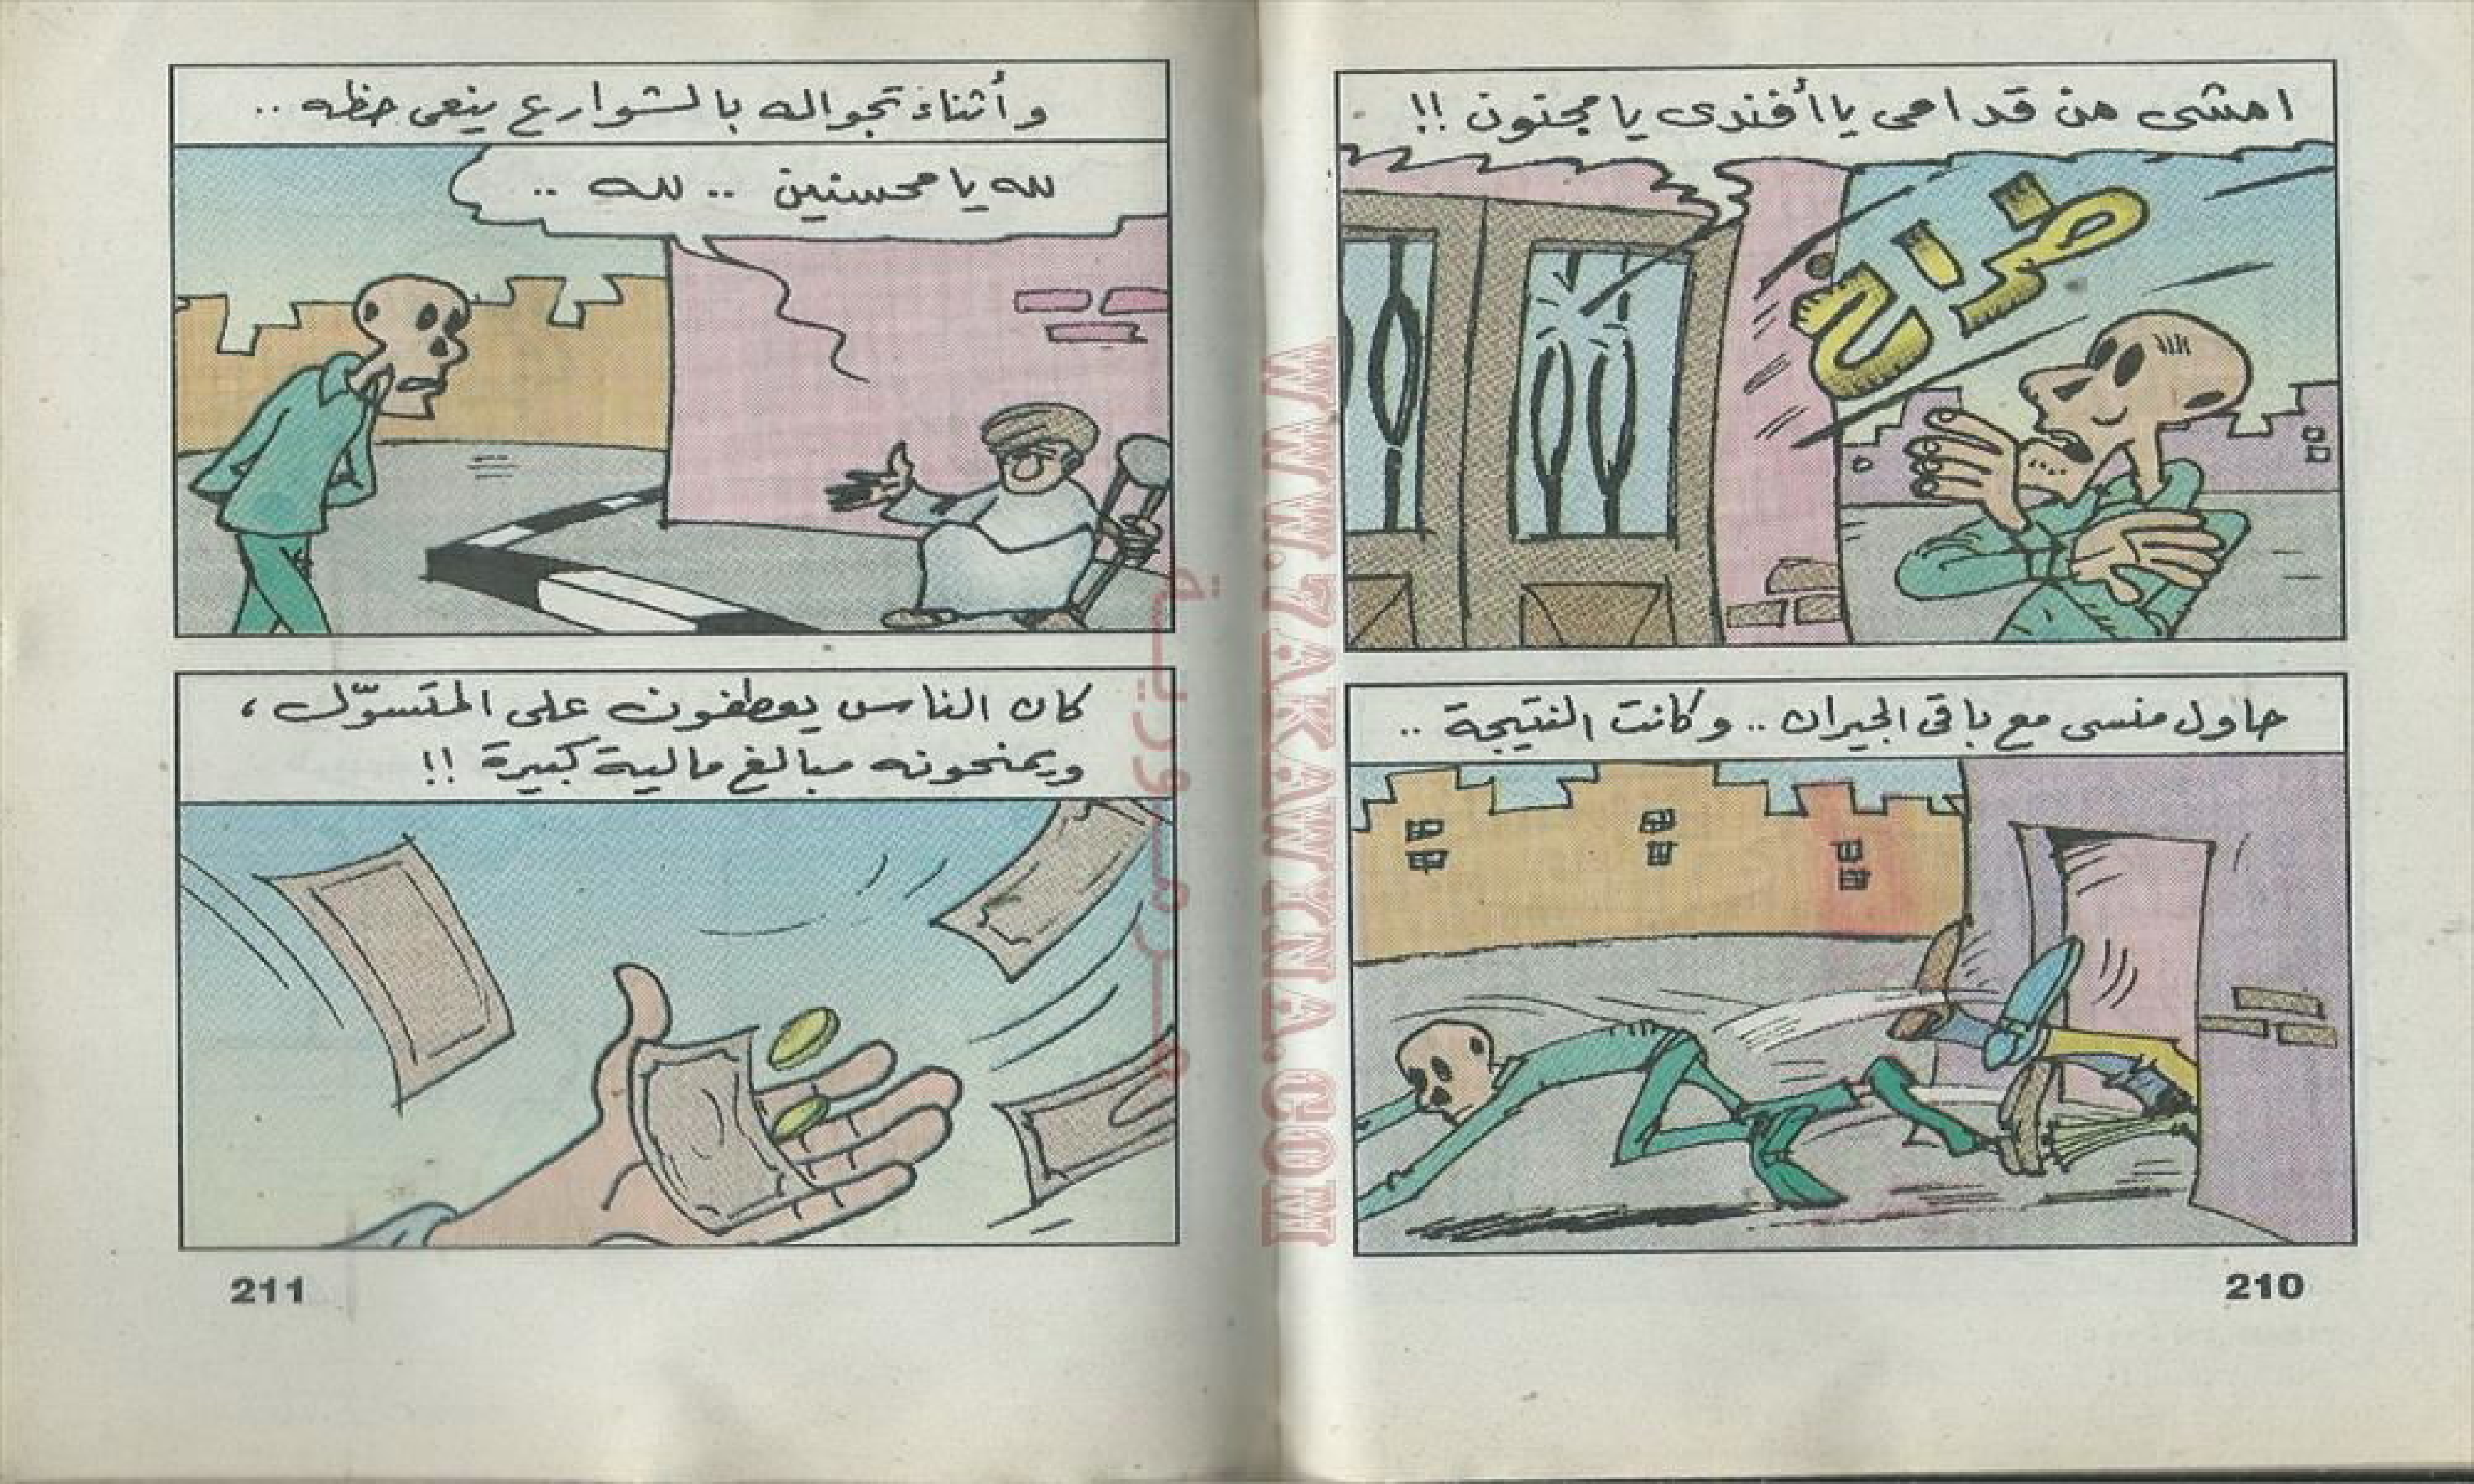 امشى من قدامى يا أفندى يا مجنون !!
طراخ
حاول منسى مع باقى الجيران .. وكانت النتيجة ..
210
وأثناء تجواله بالشوارع ينعى حظه ..
لله يا محسنين .. لله ..
كان الناس يعطفون على المتسوّل ،
ويمنحونه مبالغ مالية كبيرة !!
211
WWW.7AKAWYNA.COM